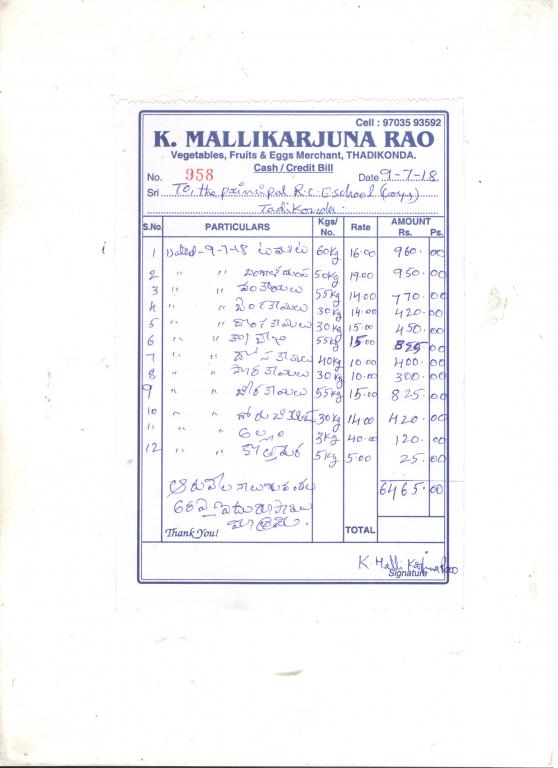 Cell : 97035 93592
K. MALLIKARJUNA RAO
Vegetables, Fruits & Eggs Merchant, THADIKONDA.
Cash / Credit Bill
No. 958 Date 9-7-18
Sri To, the principal R.C.E school (Boys)
Tadikonda
S.No. PARTICULARS Kgs/ No. Rate AMOUNT Rs. Ps.
1 Dated-9-7-18 టమాటలు 60kg 16.00 960.00
2 " " 50kg 19.00 950.00
3 " " వంకాయలు 55kg 14.00 770.00
4 " " బెండకాయలు 30kg 14.00 420.00
5 " " దొండకాయలు 30kg 15.00 450.00
6 " " 55kg 15.00 825.00
7 " " దోసకాయలు 40kg 10.00 400.00
8 " " సొరకాయలు 30kg 10.00 300.00
9 " " బీరకాయలు 55kg 15.00 825.00
10 " " 30kg 14.00 420.00
11 " " అల్లం 3kg 40.00 120.00
12 " " కొత్తిమీర 5kg 5.00 25.00
ఆరువేల నాలుగువందల
6465.00
అరవై ఐదు రూపాయలు
మాత్రమే.
Thank You! TOTAL
K. Malli Karjuna Rao
Signature